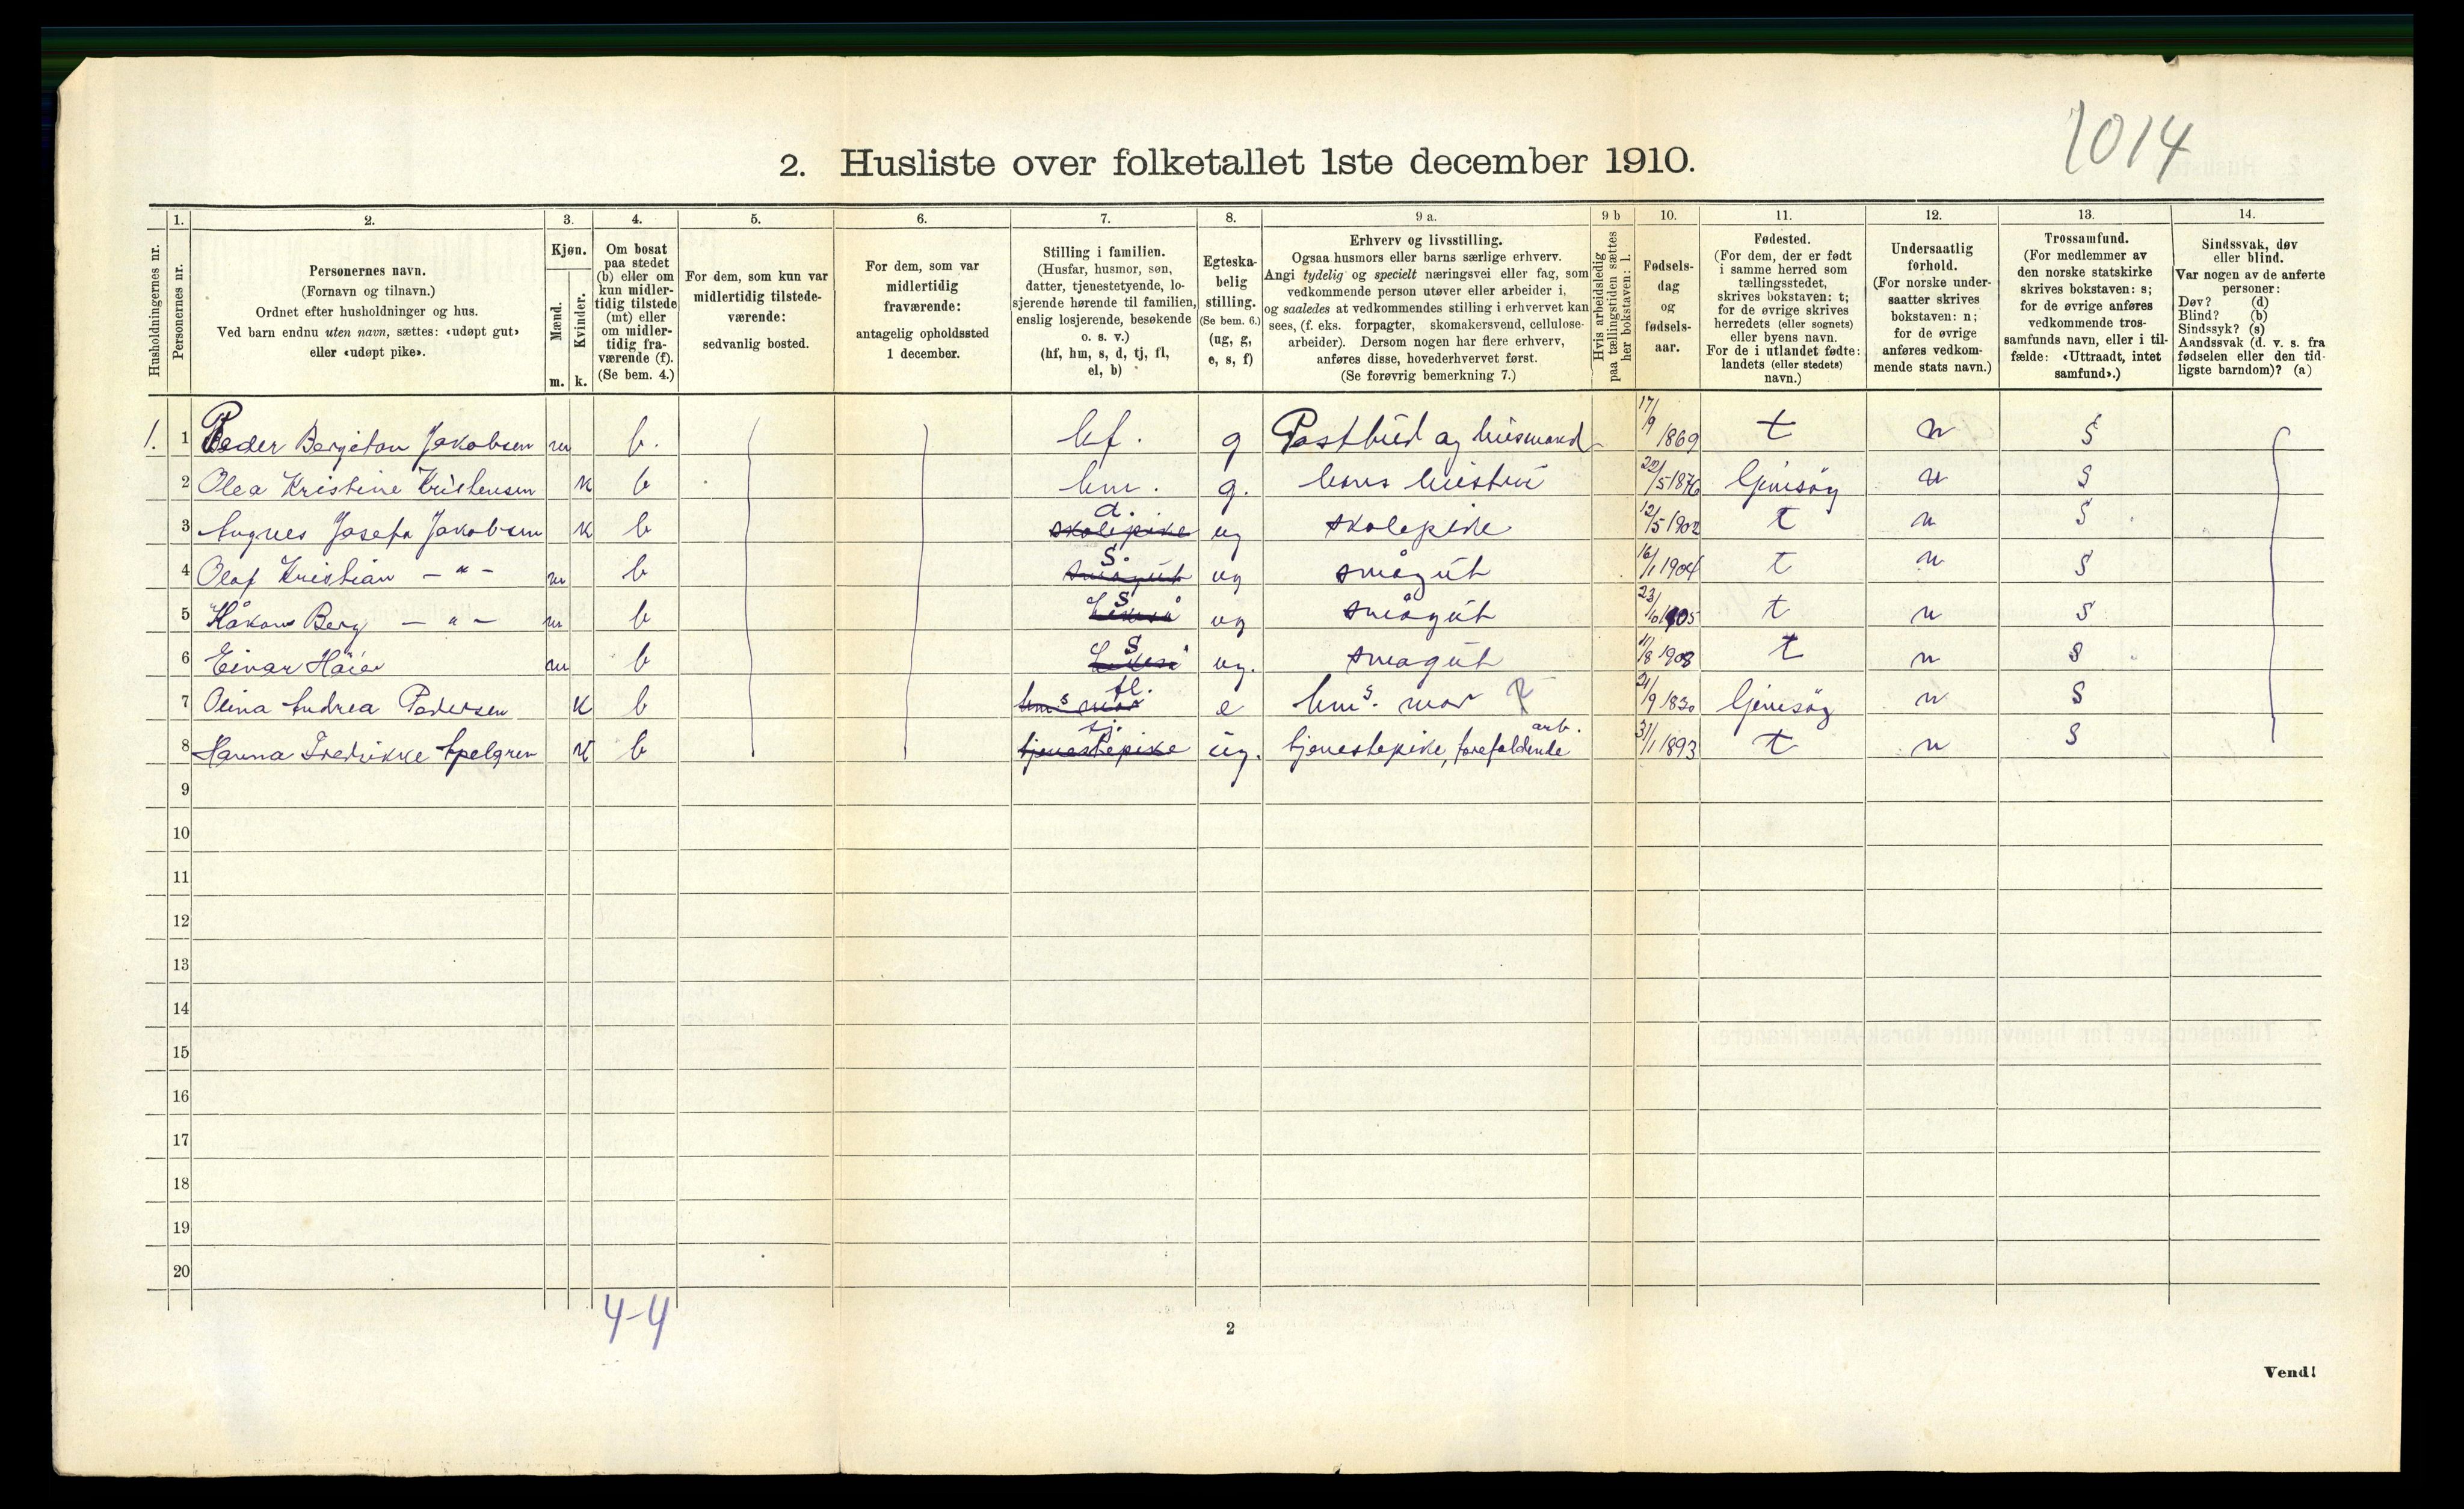 1014
2. Husliste over folketallet 1ste december 1910.
1. 2. 3. 4. 5. 6. 7. 8. 9 a. 9 b 10. 11. 12. 13. 14.
Husholdningernes nr.
Personernes nr.
Personernes navn.
(Fornavn og tilnavn.)
Ordnet efter husholdninger og hus.
Ved barn endnu uten navn, sættes: «udøpt gut»
eller «udøpt pike».
Kjøn.
Mænd.
Kvinder.
m. k.
Om bosat
paa stedet
(b) eller om
kun midler-
tidig tilstede
(mt) eller
om midler-
tidig fra-
værende (f).
(Se bem. 4.)
For dem, som kun var
midlertidig tilstede-
værende:
sedvanlig bosted.
For dem, som var
midlertidig
fraværende:
antagelig opholdssted
1 december.
Stilling i familien.
(Husfar, husmor, søn,
datter, tjenestetyende, lo-
sjerende hørende til familien,
enslig losjerende, besøkende
o. s. v.)
(hf, hm, s, d, tj, fl,
el, b)
Egteska-
belig
stilling.
(Se bem. 6.)
(ug, g,
e, s, f)
Erhverv og livsstilling.
Ogsaa husmors eller barns særlige erhverv.
Angi tydelig og specielt næringsvei eller fag, som
vedkommende person utøver eller arbeider i,
og saaledes at vedkommendes stilling i erhvervet kan
sees, (f. eks. forpagter, skomakersvend, cellulose-
arbeider). Dersom nogen har flere erhverv,
anføres disse, hovederhvervet først.
(Se forøvrig bemerkning 7.)
Hvis arbeidsledig
paa tællingstiden sættes
her bokstaven: l.
Fødsels-
dag
og
fødsels-
aar.
Fødested.
(For dem, der er født
i samme herred som
tællingsstedet,
skrives bokstaven: t;
for de øvrige skrives
herredets (eller sognets)
eller byens navn.
For de i utlandet fødte:
landets (eller stedets)
navn.)
Undersaatlig
forhold.
(For norske under-
saatter skrives
bokstaven: n;
for de øvrige
anføres vedkom-
mende stats navn.)
Trossamfund.
(For medlemmer av
den norske statskirke
skrives bokstaven: s;
for de øvrige anføres
vedkommende tros-
samfunds navn, eller i til-
fælde: «Uttraadt, intet
samfund».)
Sindssvak, døv
eller blind.
Var nogen av de anførte
personer:
Døv? (d)
Blind? (b)
Sindssyk? (s)
Aandssvak (d. v. s. fra
fødselen eller den tid-
ligste barndom)? (a)
1. 1 Peder Bergiton Jakobsen m b. hf. g Postbud og husmand 17/9 1869 t n S
2 Olea Kristine Kristensen k b hm. g. hans hustru 22/5 1876 Gimsøy n S
3 Augnes Josefa Jakobsen k b skolepike d. ug skolepike 12/5 1902 t n S
4 Olaf Kristian - " - m b smågut S. ug smågut 16/1 1904 t n S
5 Håkon Berg - " - m b S ug smågut 23/10 1905 t n S
6 Einar Høier m b S ug. smågut 11/8 1908 t n S
7 Olina Andrea Pedersen k b hms mor fl. e hms. mor 21/9 1830 Gimsøy n S
8 Hanna Fredrikke Apelgren k b tjenestepike tj. ug. tjenestepike, forefaldende arb. 31/1 1893 t n S
9
10
11
12
13
14
15
16
17
18
19
20
4-4
2
Vend!